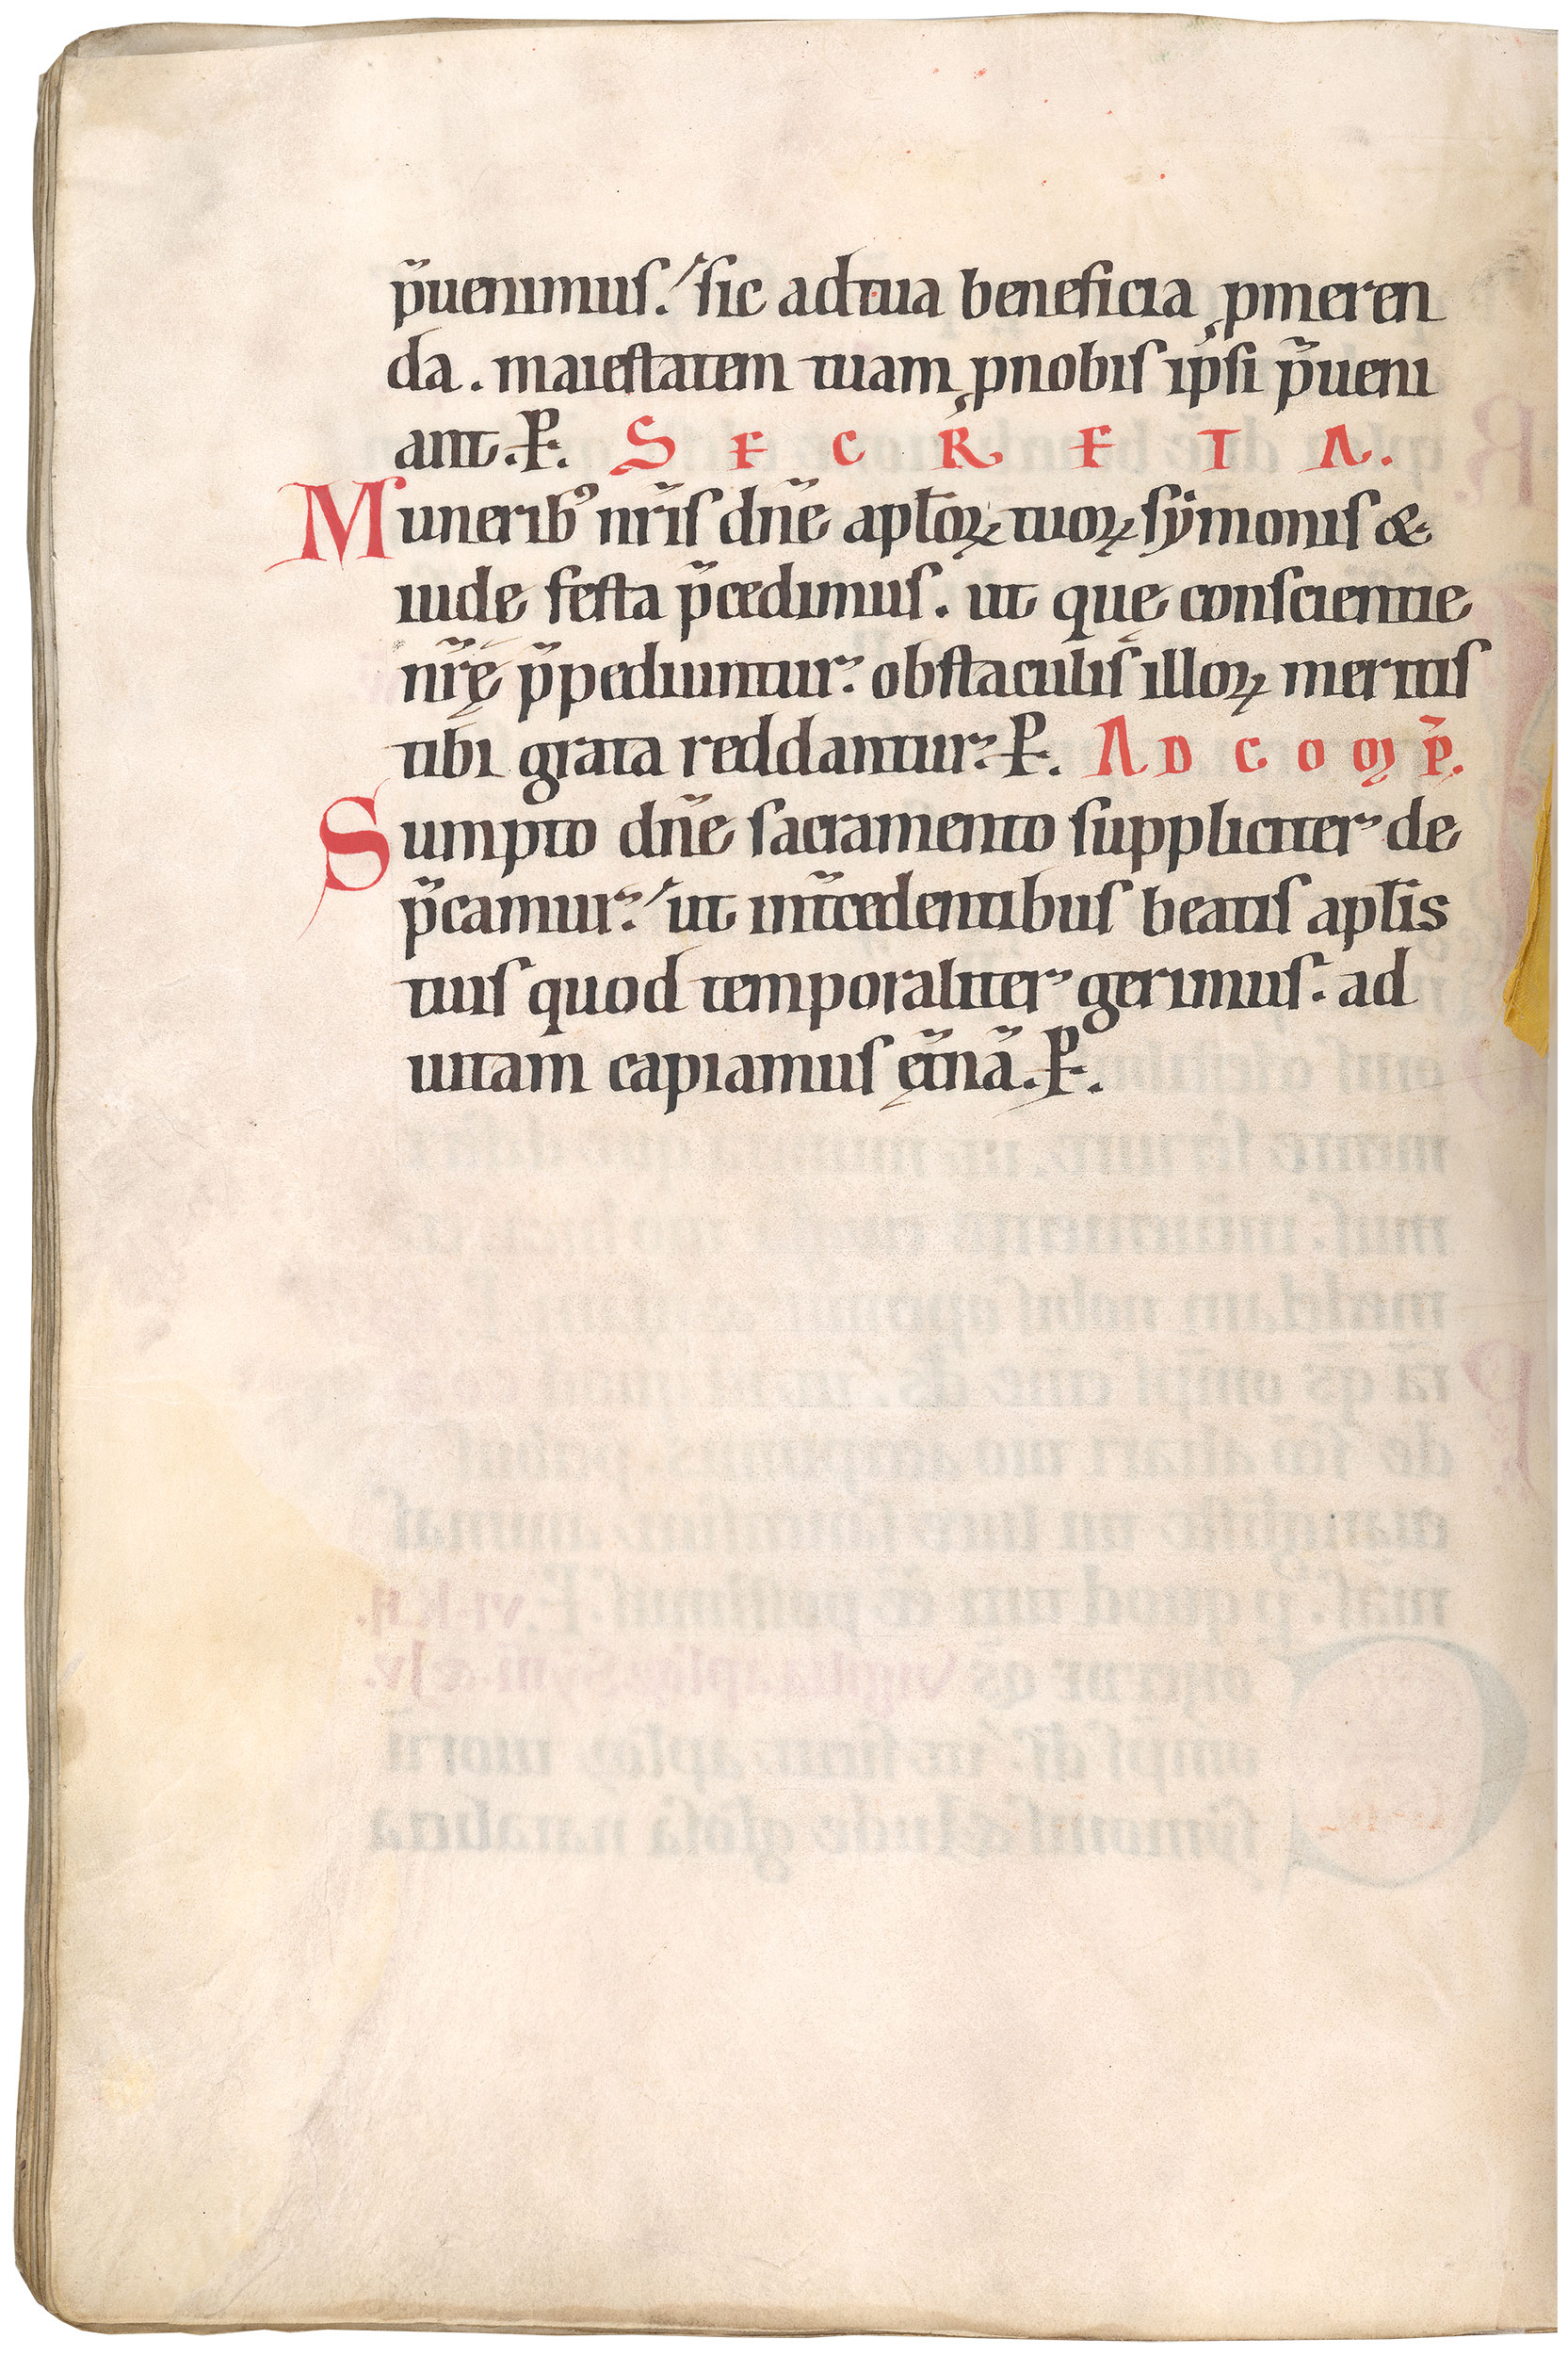 p̄uenimuſ. ſic ad tua beneficia ꝓmeren
da. maieſtatem tuam ꝓ nobiſ ip̄ſi p̄ueni
ant. P. SECRETA.
Munerib⁹ nr̄iſ dn̄e apl̄oꝝ tuoꝝ ſẏmoniſ &
iude feſta p̄cedimuſ. ut quę conſcientie
nr̄ę p̄pediuntur. obſtaculiſ illoꝝ meritiſ
tibi grata reddantur. P. AD COMP̄.
Sumpto dn̄e ſacramento ſuppliciter de
p̄camur. ut int̄cedentibuſ beatiſ apl̄is
tuiſ quod temporaliter gerimuſ. ad
uitam capiamuſ ęt̄nā. P.